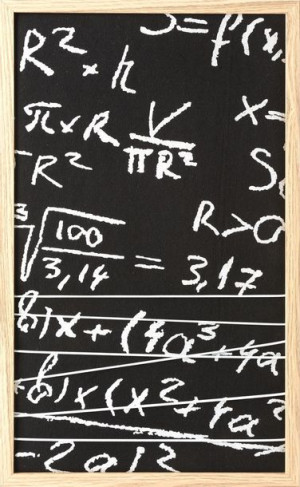 J = f(x,
R² × h
π × R V/πR² x =
R² S
R > 0
³√100/3,14 = 3,17
b)x + (4a³ + 4a
+b)x(x² + 4a²
-2a)2